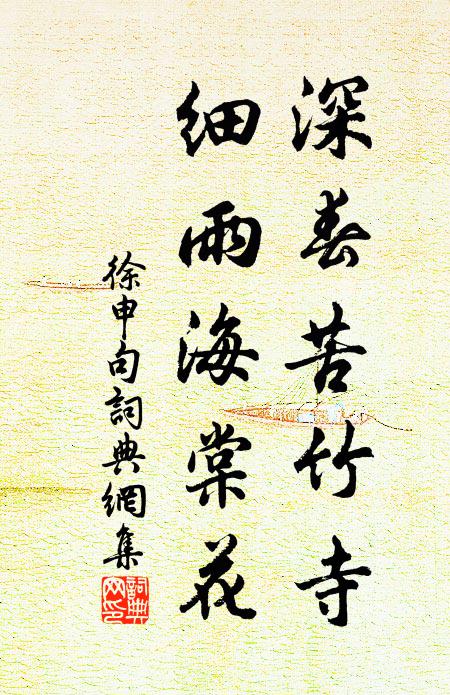 深春苦竹寺
細雨海棠花
徐申句詞典網集
詞典网印